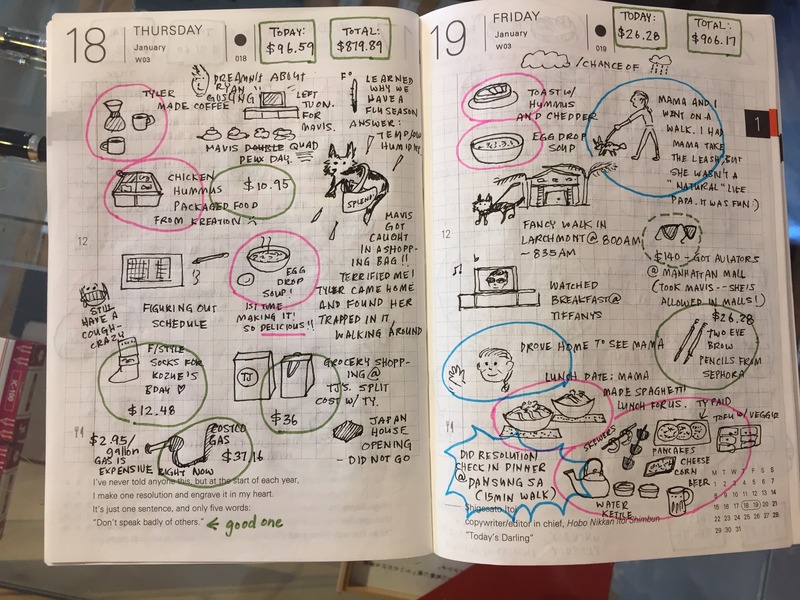 18
THURSDAY
January
W03
018
TODAY:
$96.59
TOTAL:
$879.89
TYLER
MADE COFFEE
DREAMIN'S ABOUT
RYAN
GOSLING
LEFT
TV ON
FOR
MAVIS.
MAVIS DOUBLE QUAD
DEUX DAY.
LEARNED
WHY WE
HAVE A
FLU SEASON
ANSWER:
TEMP/LOW
HUMIDITY
CHICKEN
HUMMUS
PACKAGED FOOD
FROM KREATION
$10.95
SPLENDI
MAVIS
GOT
CAUGHT
IN A SHOPP-
ING BAG!!
TERRIFIED ME!
TYLER CAME HOME
AND FOUND HER
TRAPPED IN IT
WALKING AROUND
12
FIGURING OUT
SCHEDULE
EGG
DROP
SOUP!
1ST TIME
MAKING IT!
SO DELICIOUS!!
STILL
HAVE A
COUGH-
CRAZY
F/STYLE
SOCKS FOR
KOZUE'S
BDAY ♡
$12.48
TJ
GROCERY SHOPP-
ING @
TJ'S. SPLIT
COST W/ TY.
$36
$2.95/
gallon
GAS IS
EXPENSIVE RIGHT NOW
COSTCO
GAS
$37.16
JAPAN
HOUSE
OPENING
- DID NOT GO
I've never told anyone this, but at the start of each year,
I make one resolution and engrave it in my heart.
It's just one sentence, and only five words:
"Don't speak badly of others." ← good one
19
FRIDAY
January
W03
019
TODAY:
$26.28
TOTAL:
$906.17
/CHANCE OF
TOAST W/
HUMMUS
AND CHEDDER
EGG DROP
SOUP
MAMA AND I
WENT ON A
WALK. I HAD
MAMA TAKE
THE LEASH, BUT
SHE WASN'T A
"NATURAL" LIKE
PAPA. IT WAS FUN :)
1
12
FANCY WALK IN
LARCHMONT @ 800AM
~ 835AM
$140 - GOT AVIATORS
@ MANHATTAN MALL
(TOOK MAVIS -- SHE IS
ALLOWED IN MALLS!)
WATCHED
BREAKFAST @
TIFFANYS
$26.28
TWO EYE
BROW
PENCILS FROM
SEPHORA
DROVE HOME TO SEE MAMA
LUNCH DATE: MAMA
MADE SPAGHETTI
LUNCH FOR US.
TY PAID
SKEWERS
TOFU W/ VEGGIE
PANCAKES
CHEESE
CORN
BEER
DID RESOLUTION
CHECK IN DINNER
@ DANSUNG SA
(15MIN WALK)
WATER
KETTLE
M T W T F S S
1 2 3 4 5 6 7
8 9 10 11 12 13 14
15 16 17 18 19 20 21
22 23 24 25 26 27 28
29 30 31
Shigesato Itoi
copywriter/editor in chief, Hobo Nikkan Itoi Shimbun
"Today's Darling"